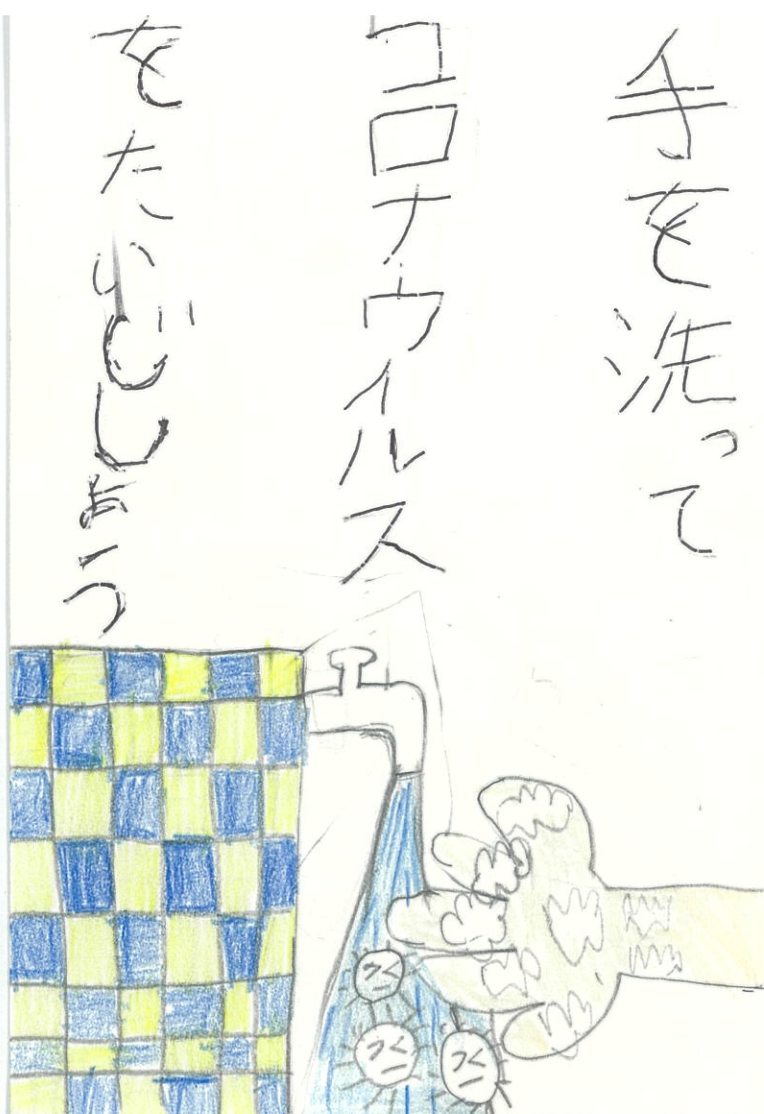 手を洗って
コロナウイルス
をたいじしょう